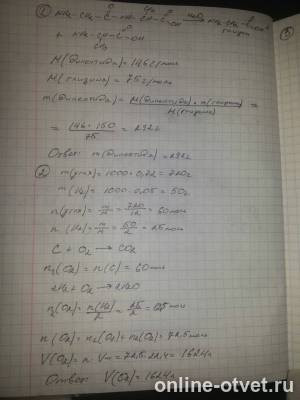 ① NH₂-CH₂-C-NH-CH-C
O CH₃ O OH
+ NH₂-CH-C-OH
CH₃
M(дипептида) = 146 г/моль
M(глицина) = 75 г/моль
m(дипептида) = M(дипептида) · m(глицина) / M(глицина) =
= 146 · 150 / 75 = 292 г
Ответ: m(дипептида) = 292 г
② m(угля) = 1000 · 0,72 = 720 г
m(H₂) = 1000 · 0,05 = 50 г
n(угля) = m/M = 720/12 = 60 моль
n(H₂) = m/M = 50/2 = 25 моль
C + O₂ → CO₂
n₁(O₂) = n(C) = 60 моль
2H₂ + O₂ → 2H₂O
n₂(O₂) = n(H₂)/2 = 25/2 = 12,5 моль
n(O₂) = n₁(O₂) + n₂(O₂) = 72,5 моль
V(O₂) = n · Vm = 72,5 · 22,4 = 1624 л
Ответ: V(O₂) = 1624 л
online-otvet.ru